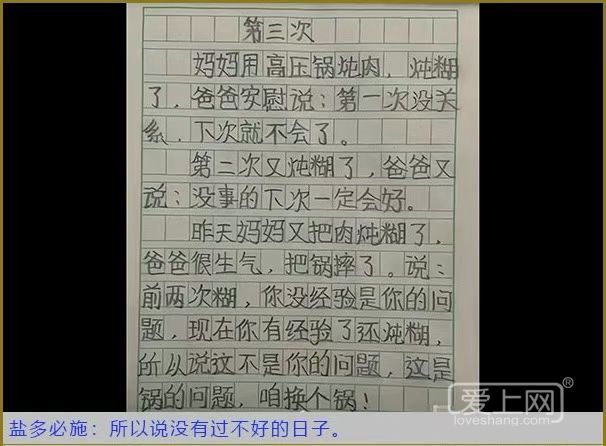 第三次
妈妈用高压锅炖肉，炖糊
了，爸爸安慰说：第一次没关
系，下次就不会了。
第二次又炖糊了，爸爸又
说：没事的下次一定会好。
昨天妈妈又把肉炖糊了，
爸爸很生气，把锅摔了。说：
前两次糊，你没经验是你的问
题，现在你有经验了还炖糊，
所以说这不是你的问题，这是
锅的问题，咱换个锅！
爱上网®
loveshang.com
盐多必施：所以说没有过不好的日子。